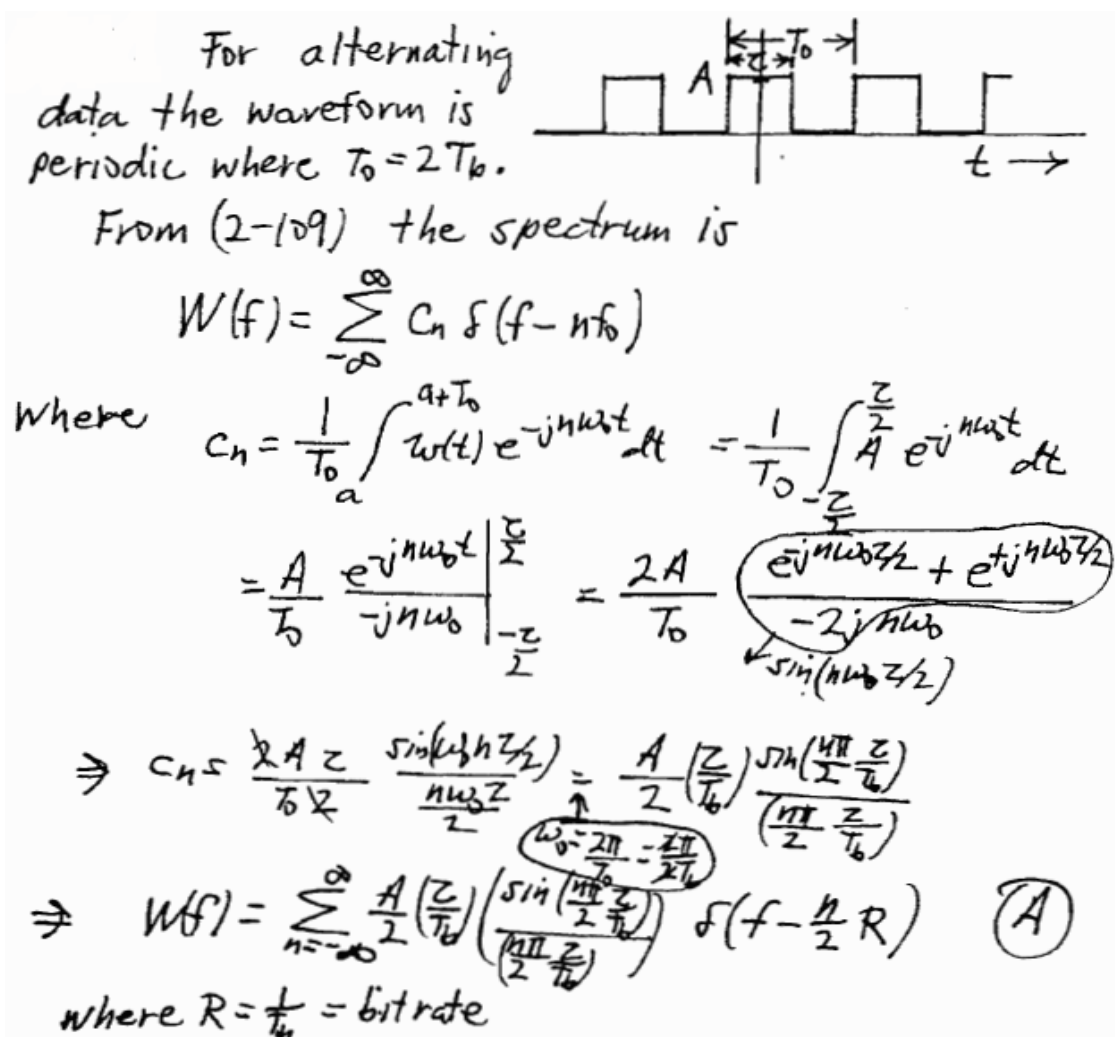 For alternating
data the waveform is
periodic where T₀ = 2T_b.
A
T₀
τ
t →
From (2-109) the spectrum is
W(f) = ∑_{-∞}^{∞} c_n δ(f - nf₀)
where c_n = 1/T₀ ∫_a^{a+T₀} w(t) e^{-jnω₀t} dt = 1/T₀ ∫_{-τ/2}^{τ/2} A e^{-jnω₀t} dt
= A/T₀ e^{-jnω₀t}/(-jnω₀) |_{-τ/2}^{τ/2} = 2A/T₀ (e^{-jnω₀τ/2} + e^{+jnω₀τ/2})/(-2jnω₀)
sin(nω₀τ/2)
⇒ c_n = 2Aτ/(T₀2) sin(ω₀nτ/2)/(nω₀τ/2) = A/2 (τ/T_b) sin(nπ/2 τ/T_b)/(nπ/2 τ/T_b)
ω₀ = 2π/T₀ = 2π/2T_b
⇒ W(f) = ∑_{n=-∞}^{∞} A/2 (τ/T_b) (sin(nπ/2 τ/T_b)/(nπ/2 τ/T_b)) δ(f - n/2 R) A
where R = 1/T_b = bit rate